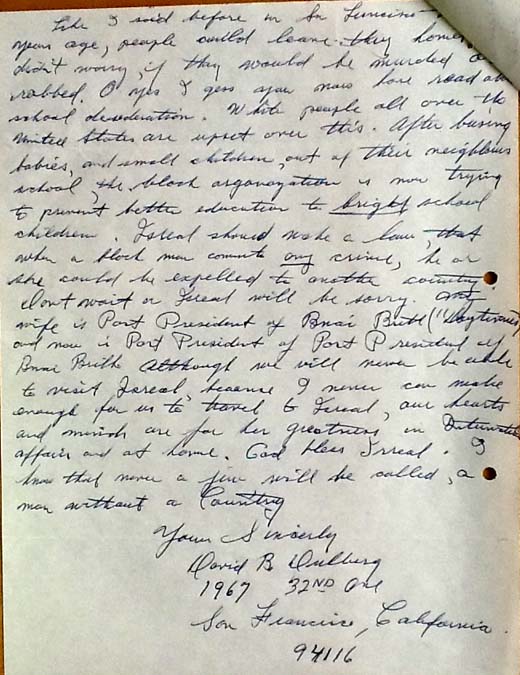 Like I said before in Sn Francisco
years age, people could leave they homes
didn't worry, if they would be murded or
robbed. O yes I gess you now have read ab
school desederation. White people all over the
United States are upset over this. After busing
babies, and small children, out of their neighbours
school, the black organazation is now trying
to prevent better education to bright school
children. Isreal should make a law, that
when a black man commits any crime, he or
she could be expelled to another country
Dont wait or Isreal will be sorry. My
wife is Past President of Bnai Brith (
and now is Past President of Past President of
Bnai Brith Although we will never be able
to visit Isreal, because I never can make
enough for us to travel to Isreal, our hearts
and minds are for her greatness in
affair and at home. God bless Isreal. I
know that never a jew will be called, a
man without a Country
Yours Sincerly
David B. Dulberg
1967 32ND Ave
San Francisco, California.
94116